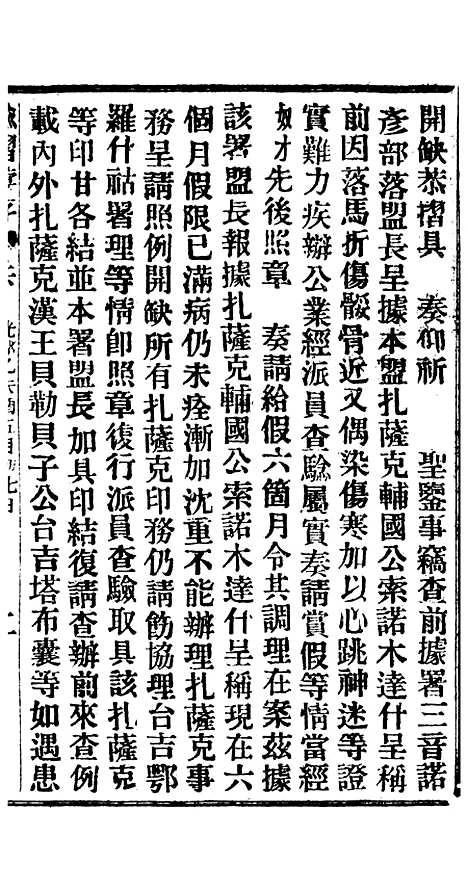 開缺恭摺具　奏仰祈　聖鑒事竊查前據署三音諾
彥部落盟長呈據本盟扎薩克輔國公索諾木達什呈稱
前因落馬折傷骽骨近又偶染傷寒加以心跳神迷等證
實難力疾辦公業經派員查驗屬實奏請賞假等情當經
奴才先後照章　奏請給假六箇月令其調理在案茲據
該署盟長報據扎薩克輔國公索諾木達什呈稱現在六
個月假限已滿病仍未痊漸加沈重不能辦理扎薩克事
務呈請照例開缺所有扎薩克印務仍請飭協理台吉鄂
羅什祜署理等情卽照章復行派員查驗取具該扎薩克
等印甘各結並本署盟長加具印結復請查辦前來查例
載內外扎薩克漢王貝勒貝子公台吉塔布囊等如遇患